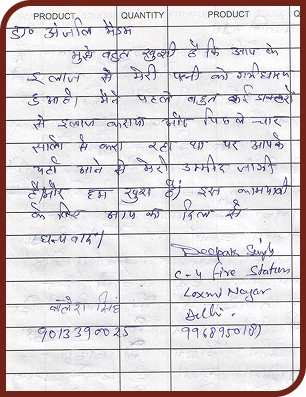 PRODUCT QUANTITY PRODUCT Q
डॉ० अंजलि मैडम
मुझे बहुत खुशी है कि आप के
इलाज से मेरी पत्नी को गर्भधारण
हुआ है। मैने पहले बहुत कई डाक्टरो
से इलाज कराया और पिछले चार
सालो से करा रहा था पर आपके
यहाँ आने से मेरी उम्मीद जागी
है और हम खुश है। इस कामयाबी
के लिए आप को दिल से
धन्यवाद।
Deepak Singh
C-4 Fire Station
Laxmi Nagar
Delhi.
सिंह
9013390025